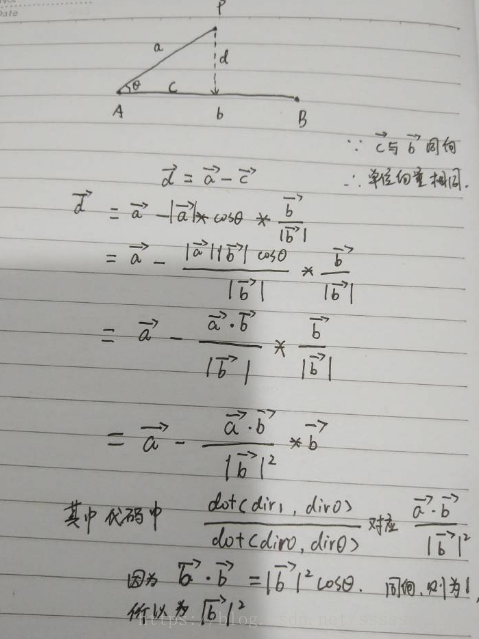 Date
P
a
d
θ
c
A
b
B
∵ c⃗与b⃗同向
d⃗ = a⃗ - c⃗
∴ 单位向量相同.
d⃗ = a⃗ - |a⃗| * cosθ * b⃗/|b⃗|
= a⃗ - |a⃗||b⃗| cosθ/|b⃗| * b⃗/|b⃗|
= a⃗ - a⃗·b⃗/|b⃗| * b⃗/|b⃗|
= a⃗ - a⃗·b⃗/|b⃗|² * b⃗
其中代码中 dot(dir1, dir0)/dot(dir0, dir0) 对应 a⃗·b⃗/|b⃗|²
因为 b⃗·b⃗ = |b⃗|² cosθ. 同向, 则为1,
所以为 |b⃗|²